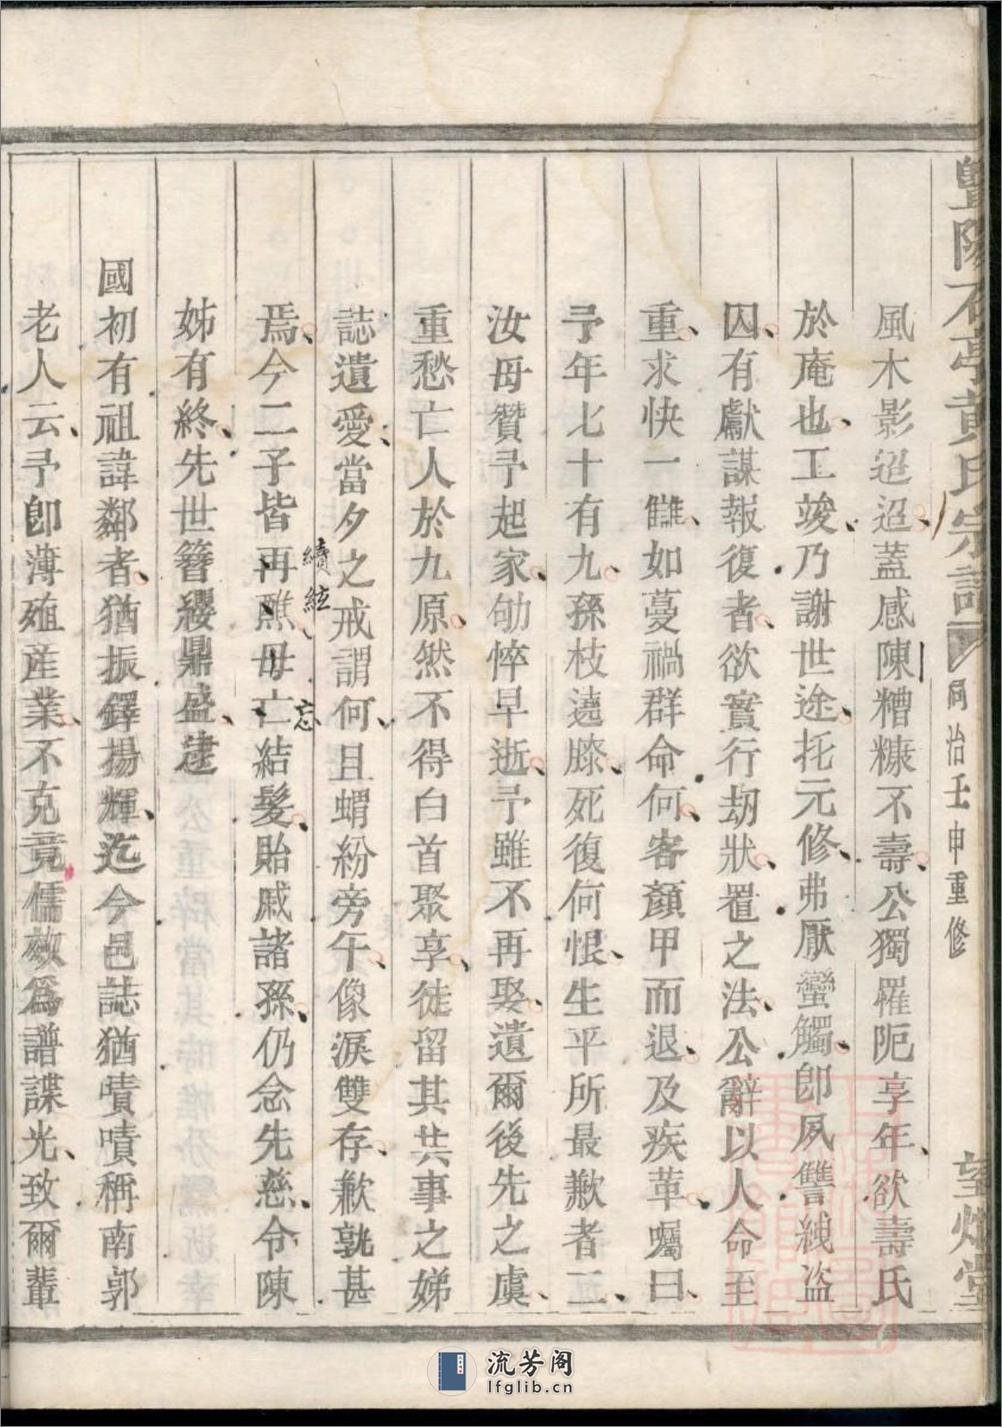 暨陽石亭黄氏宗譜 同治壬申重修 望烟堂
風木影迢迢蓋感陳糟糠不壽公獨罹阨享年欲壽氏
於庵也工竣乃謝世途托元修弗厭蠻觸卽夙讐綫盗
囚有獻謀報復者欲寘行刼狀置之法公辭以人命至
重求快一讎如蔓禍群命何客顏甲而退及疾革囑曰
予年七十有九孫枝遶膝死復何恨生平所最歉者二
汝母贊予起家劬悴早逝予雖不再娶遺爾後先之虞
重愁亡人於九原然不得白首聚享徒留其共事之娣
誌遺愛當夕之戒謂何且蝟紛旁午像淚雙存歉孰甚
焉今二子皆再醮母亡結髪貽戚諸孫仍念先慈令陳
續絃
忘
姊有終先世簪纓鼎盛逮
國初有祖諱鄰者猶振鐸揚輝迄今邑誌猶嘖嘖稱南郭
老人云予卽薄殖産業不克竟儒效爲譜諜光致爾輩
流芳阁
lfglib.cn